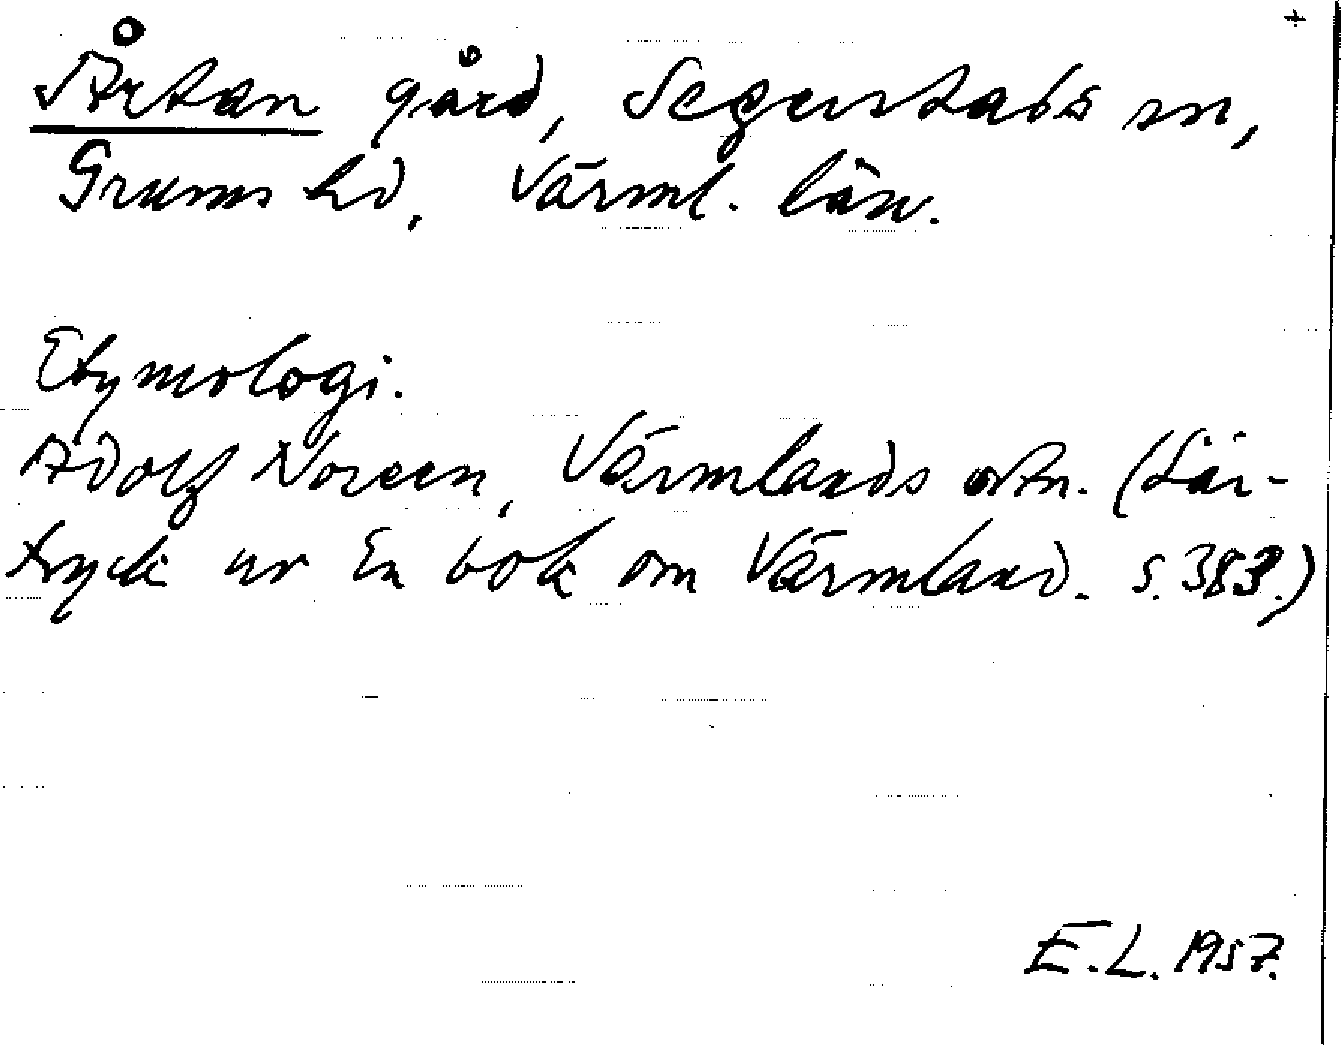 +
Årtan gård, Segerstads sn,
Grums hd, Värml. län.
Etymologi.
Adolf Noreen, Värmlands ortn. (Sär-
tryck ur En bok om Värmland. s. 383.)
E.L. 1957.